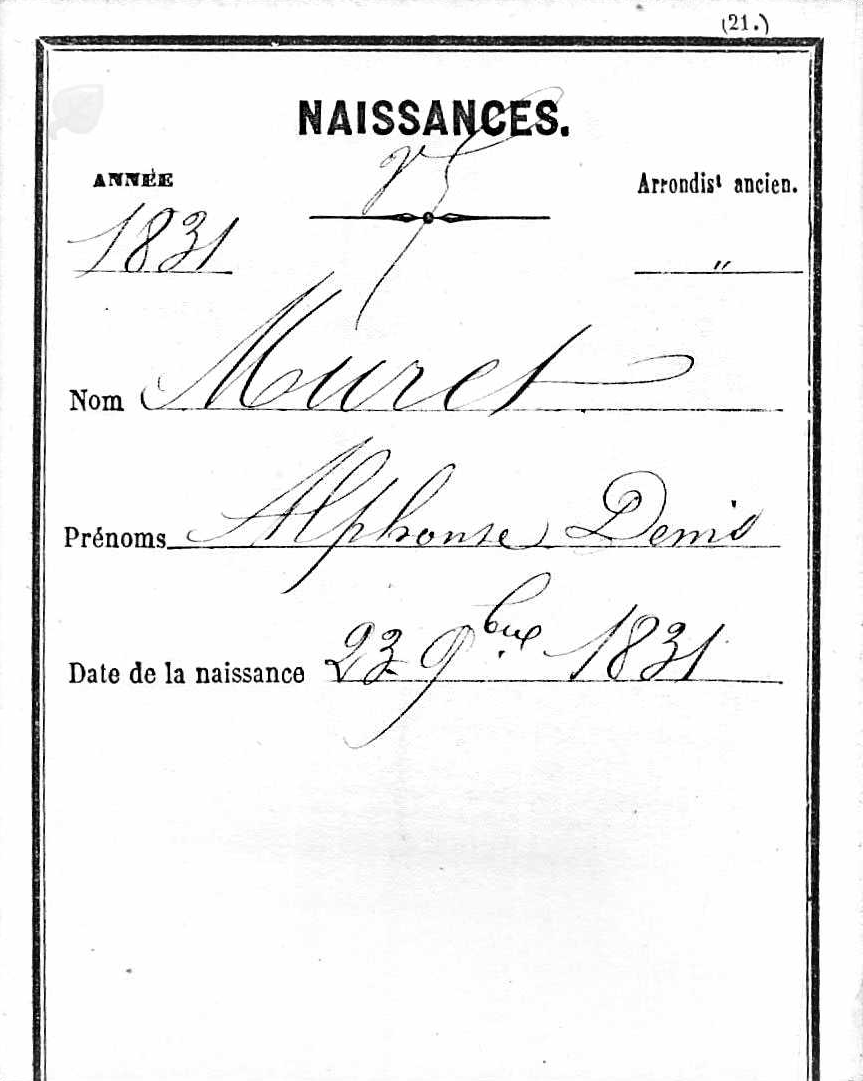 (21.)
NAISSANCES.
ANNÉE
Arrondis.t ancien.
1831
"
Nom Muret
Prénoms Alphonse Denis
Date de la naissance 23 9bre 1831